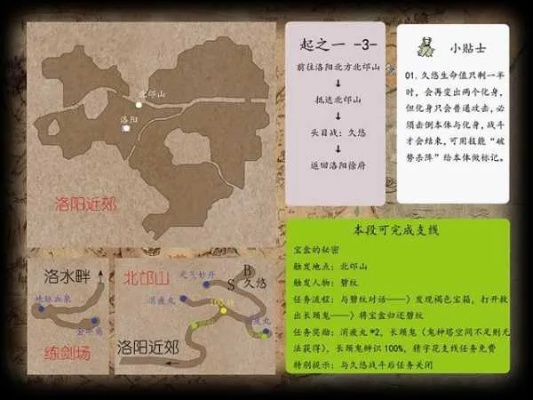 北邙山
洛阳
洛阳近郊
洛水畔
地脉血泉
练剑场
北邙山
元气妙丹
消疲丸
B
S 久悠
洛阳近郊
起之一 -3-
前往洛阳北方北邙山
↓
抵达北邙山
↓
头目战：久悠
↓
返回洛阳徐府
小贴士
01. 久悠生命值只剩一半
时，会再变出两个化身，
但化身只会普通攻击，必
须击倒本体与化身，战斗
才会结束，可用技能“破
势杀阵”给本体做标记。
本段可完成支线
宝盒的秘密
触发地点：北邙山
触发人物：碧纹
任务流程：与碧纹对话——》发现褐色宝箱，打开救
出长颈鬼——》将宝盒归还碧纹
任务奖励：消疲丸 *2，长颈鬼（鬼种塔空间不足则无
法获得），长颈鬼辨识 100%，猜字花支线任务免费
特别提示：与久悠战斗后任务关闭